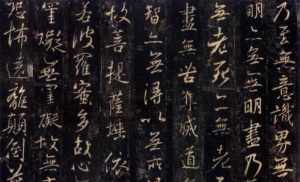 乃至無意識界無
明亦無無明盡乃
無老死亦無老
盡無苦集滅道
智亦無得以無所
故菩提薩埵依
若波羅蜜多故心
罣礙無罣礙故無
恐怖遠離顛倒